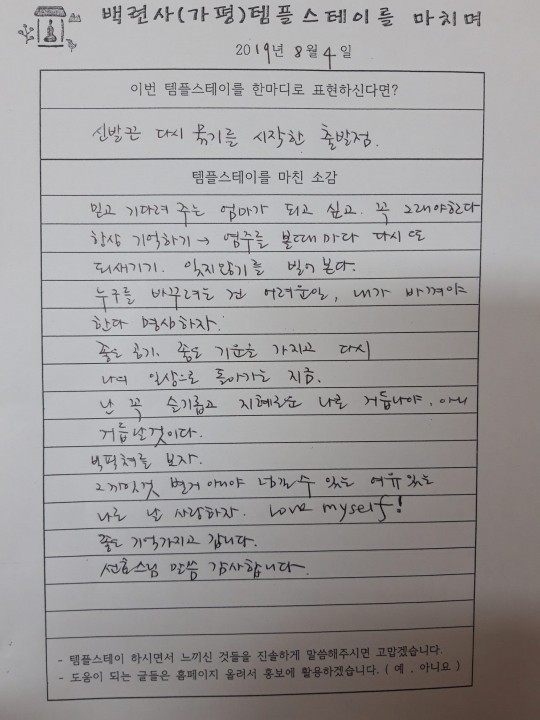 백련사(가평)템플스테이를 마치며
2019년 8월 4일
이번 템플스테이를 한마디로 표현하신다면?
신발끈 다시 묶기를 시작한 출발점.
템플스테이를 마친 소감
믿고 기다려 주는 엄마가 되고 싶고. 꼭 그래야한다
항상 기억하기 → 염주를 볼때마다 다시 또
되새기기. 잊지않기를 빌어 본다.
누구를 바꾸려는 건 어려운일, 내가 바껴야
한다 명상하자.
좋은 공기. 좋은 기운을 가지고 다시
나의 일상으로 돌아가는 지금.
난 꼭 슬기롭고 지혜로운 나로 거듭나야. 아니
거듭날것이다.
빅픽쳐를 보자.
그까잇것 별거 아니야 넘길수 있는 여유있는
나로 난 사랑하자. Love myself!
좋은 기억가지고 갑니다.
선효스님 말씀 감사합니다.
- 템플스테이 하시면서 느끼신 것들을 진솔하게 말씀해주시면 고맙겠습니다.
- 도움이 되는 글들은 홈페이지 올려서 홍보에 활용하겠습니다. ( 예 . 아니요 )